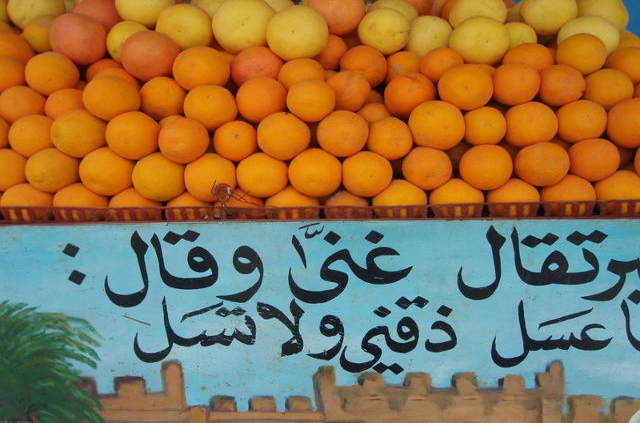 برتقال غنَّى وقال :
عسل ذقني ولا تسل